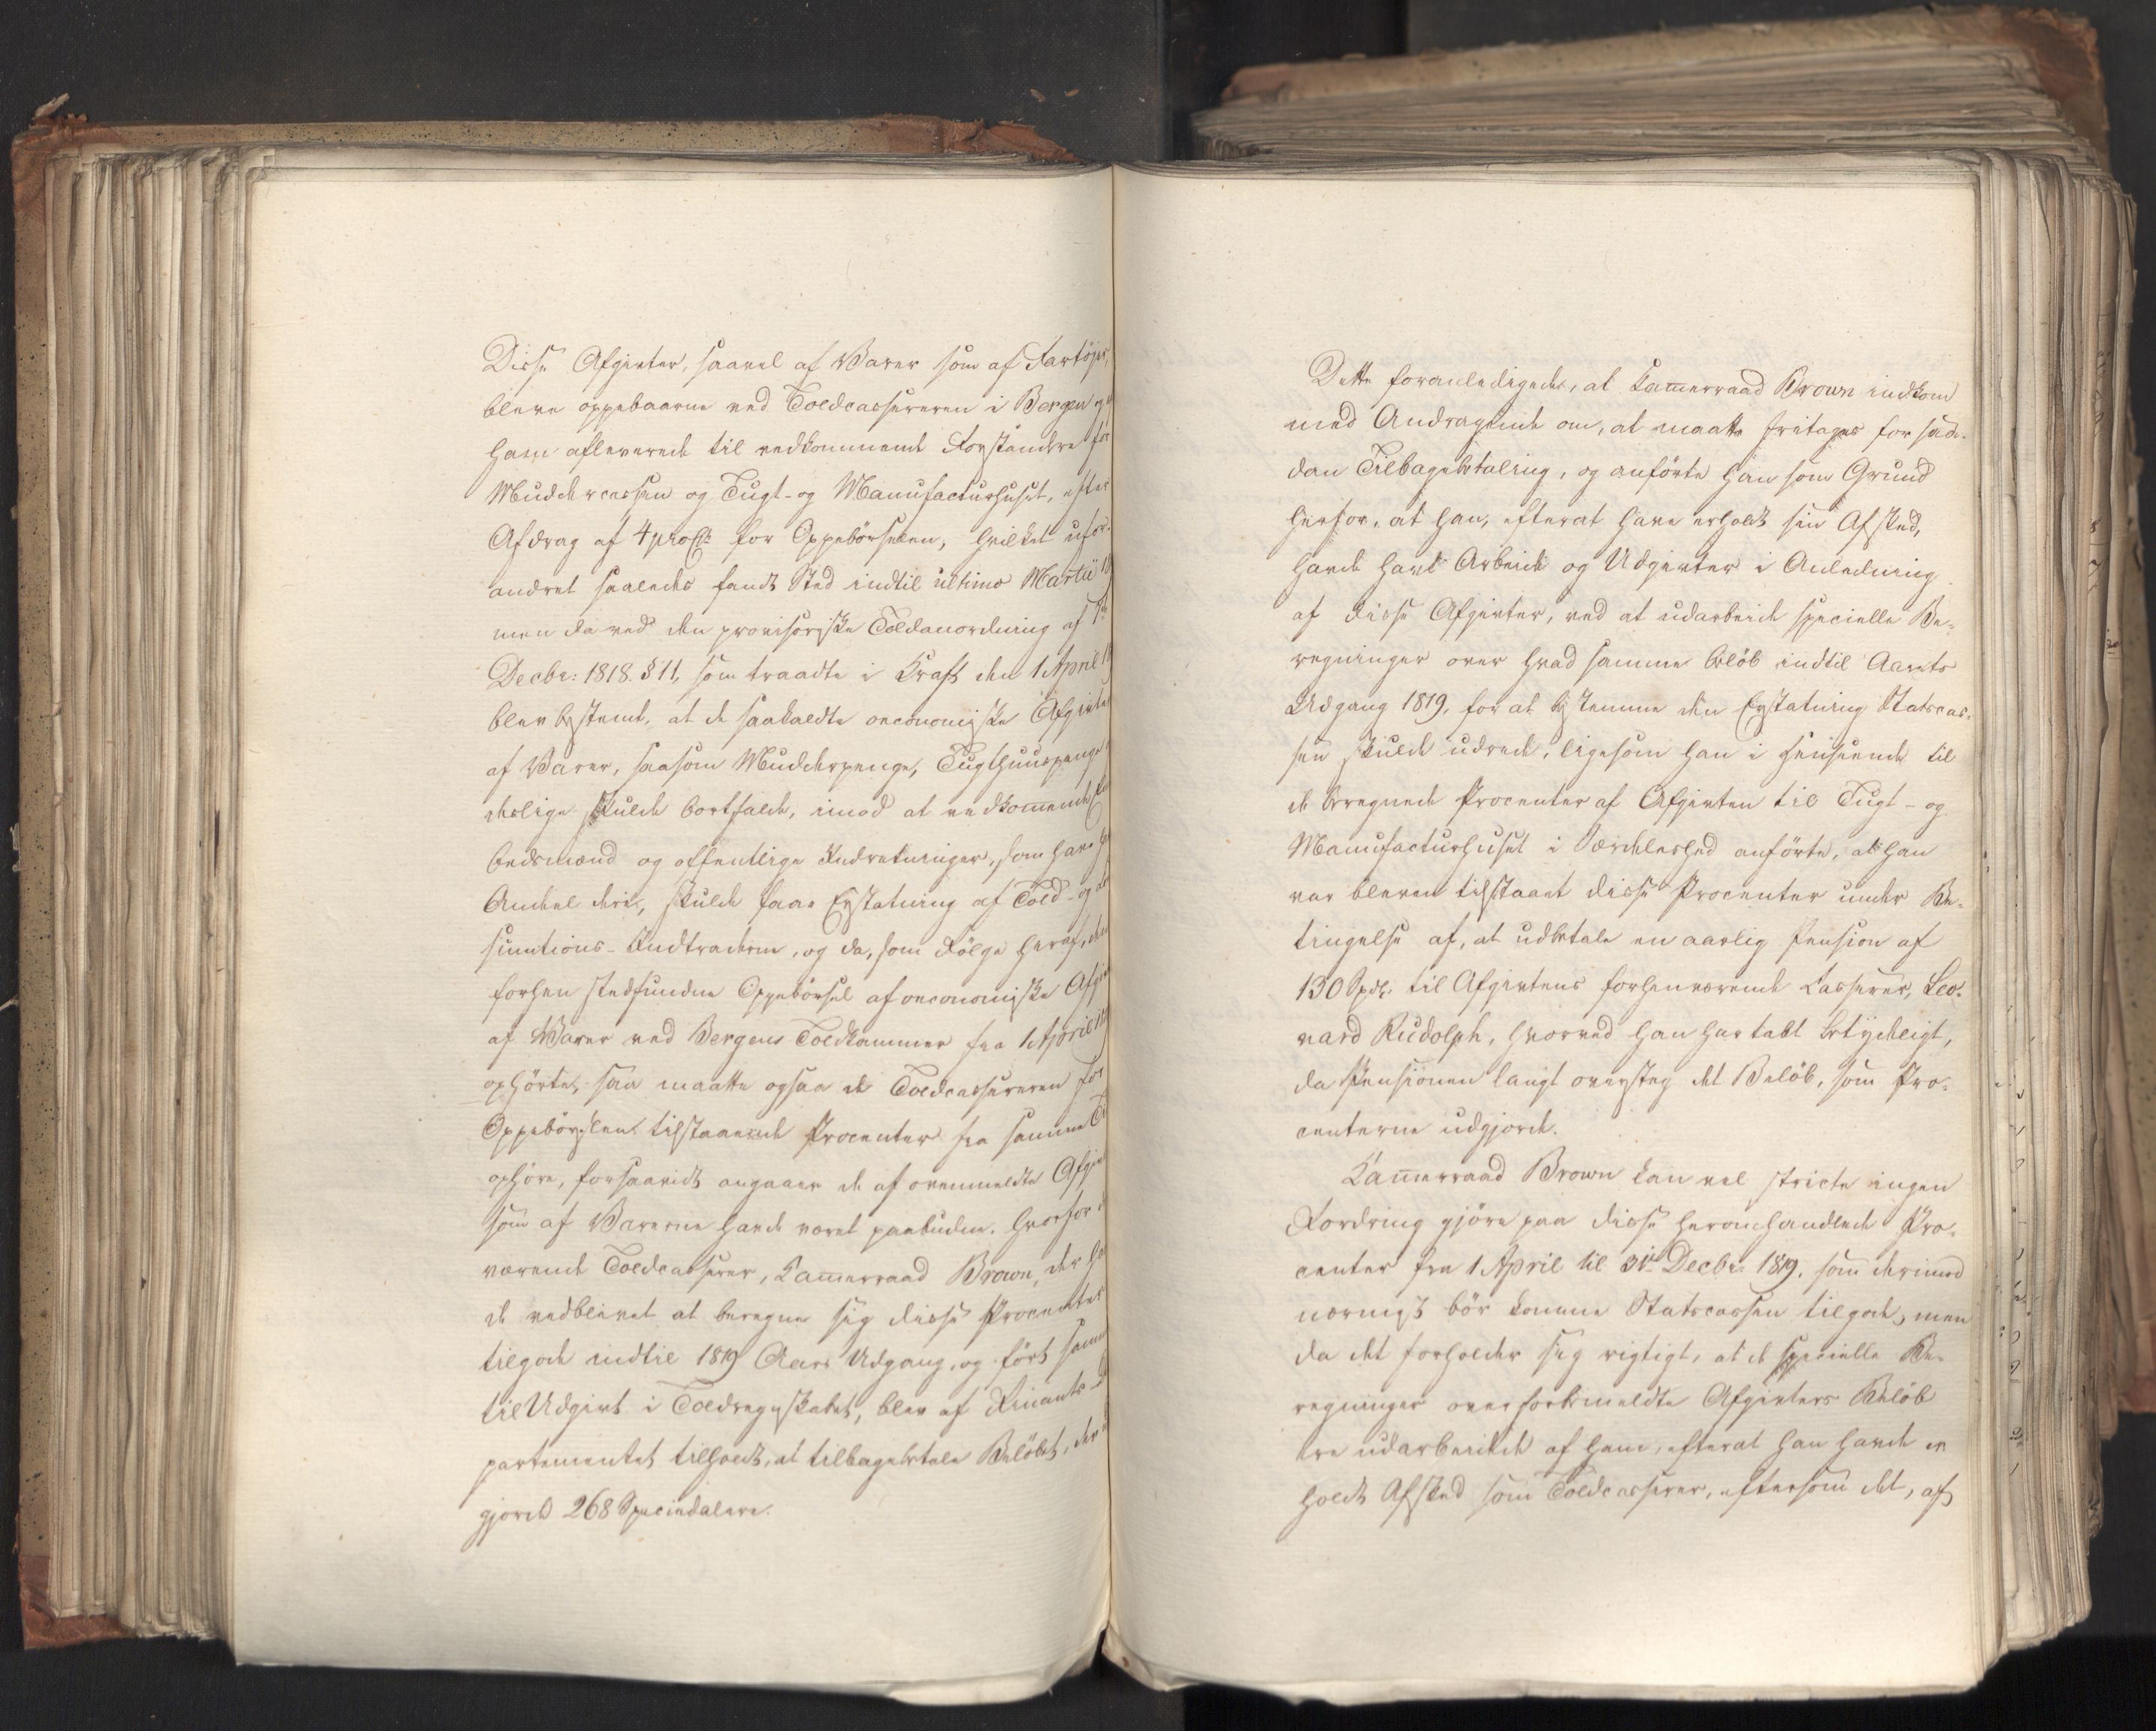 Disse Afgivter, saavel af Varer som af Fartöjer,
bleve oppebaarne ved Toldcassereren i Bergen og
ham afleverede til vedkommende Forstandere for
Muddercassen og Tugt- og Manufacturhuset, efter
Afdrag af 4 proCt. for Oppebörselen, hvilket ufor-
andret saaledes fandt Sted indtil ultimo Martii
men da ved den provisoriske Toldanordning af
Decbr: 1818. § 11, som traadte i Kraft den 1 April
blev bestemt, at de saakaldte oeconomiske Afgivter
af Varer, saasom Mudderpenge, Tugthuuspenge
deslige skulde bortfalde, imod at vedkommende
bedsmænd og offentlige Indretninger, som have
Andeel deri, skulde faae Erstatning af Told- og
sumtions-Indtraderne, og da, som Fölge heraf, den
forhen stedfundne Oppebörsel af oeconomiske
af Varer ved Bergens Toldkammer fra 1 April
ophörte, saa maatte ogsaa de Toldcassereren for
Oppebörslen tilstaaede Procenter fra samme
ophöre, forsaavidt angaaer de af ovenmeldte
som af Varerne havde været paabudne. Hvorfor
værende Toldcasserer, Kammerraad Brown, der
de vedblevet at beregne sig disse Procenter
tilgode indtil 1819 Aars Udgang, og fört samme
til Udgivt i Toldregnskabet, blev af Finants-
partementet tilholdt, at tilbagebetale Belöbet, der
gjorde 268 Speciedalere.
Dette foranledigede, at Kammerraad Brown indkom
med Andragende om, at maatte fritages for saa-
dan Tilbagebetaling, og anförte han som Grund
herfor, at han, efterat have erholdt sin Afsked,
havde havt Arbeide og Udgivter i Anledning
af disse Afgivter, ved at udarbeide specielle Be-
regninger over hvad samme belöb indtil Aarets
Udgang 1819, for at bestemme den Erstatning Statscas-
sen skulde udrede, ligesom han i Henseende til
de beregnede Procenter af Afgivten til Tugt- og
Manufacturhuset i Særdeleshed anförte, at han
var bleven tilstaaet disse Procenter under Be-
tingelse af, at udbetale en aarlig Pension af
130 Spdr. til Afgivtens forhenværende Casserer, Leo-
nard Rudolph, hvorved han har tabt betydeligt,
da Pensionen langt oversteg det Belöb, som Pro-
centerne udgjorde.
Kammerraad Brown kan vel stricte ingen
Fordring gjöre paa disse heromhandlede Pro-
center fra 1 April til 31te Decbr 1819, som derimod
nærmest bör komme Statscassen tilgode, men
da det forholder sig rigtigt, at de specielle Be-
regninger over forbemeldte Afgivters Belöb
ere udarbeidede af ham, efterat han havde er
holdt Afsked som Toldcasserer, eftersom det, af